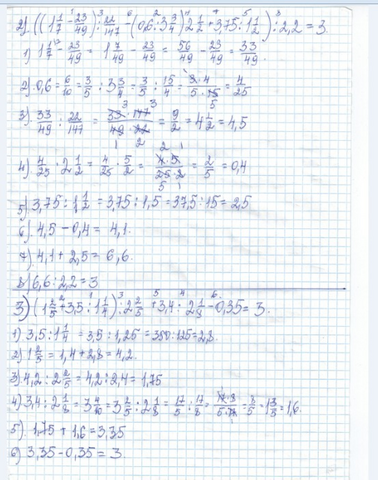 2) ((1 1/7 - 23/49) : 22/147 - (0,6 : 3 3/4) · 2 1/2 + 3,75 : 1 1/2) : 2,2 = 3.
1) 1 1/7 - 23/49 = 1 7/49 - 23/49 = 56/49 - 23/49 = 33/49.
2) 0,6 = 6/10 = 3/5 : 3 3/4 = 3/5 : 15/4 = 3·4/5·15 = 4/25
3) 33/49 : 22/147 = 33·147/49·22 = 9/2 = 4 1/2 = 4,5
4) 4/25 · 2 1/2 = 4/25 · 5/2 = 4·5/25·2 = 2/5 = 0,4
5) 3,75 : 1 1/2 = 3,75 : 1,5 = 37,5 : 15 = 2,5
6) 4,5 - 0,4 = 4,1.
7) 4,1 + 2,5 = 6,6.
8) 6,6 : 2,2 = 3.
3) (1 2/5 + 3,5 : 1 1/4) : 2 2/5 + 3,4 : 2 1/8 - 0,35 = 3.
1) 3,5 : 1 1/4 = 3,5 : 1,25 = 350 : 125 = 2,8.
2) 1 2/5 = 1,4 + 2,8 = 4,2.
3) 4,2 : 2 2/5 = 4,2 : 2,4 = 1,75
4) 3,4 : 2 1/8 = 3 4/10 = 3 2/5 : 2 1/8 = 17/5 : 17/8 = 17·8/5·17 = 8/5 = 1 3/5 = 1,6.
5) 1,75 + 1,6 = 3,35
6) 3,35 - 0,35 = 3.